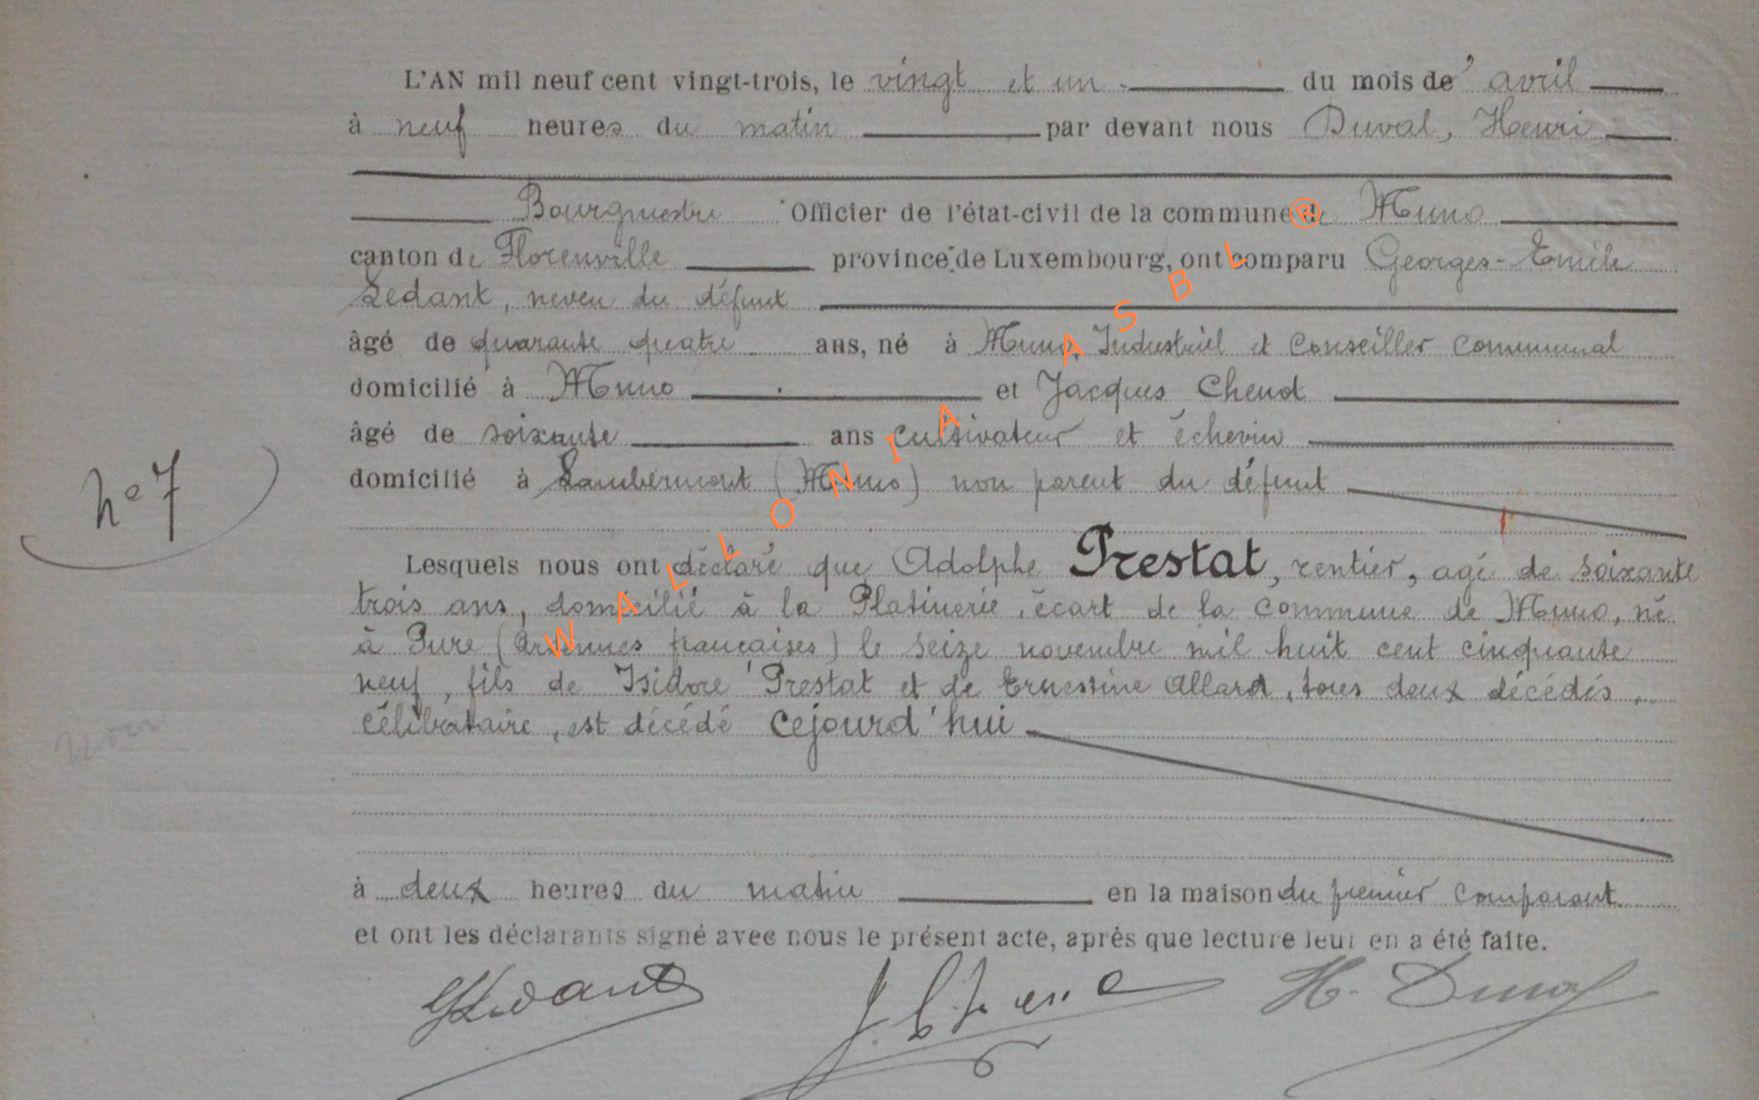 L'AN mil neuf cent vingt-trois, le vingt et un du mois de avril
à neuf heures du matin par devant nous Duval, Henri
Bourgmestre Officier de l'état-civil de la commune de Muno
canton de Florenville province de Luxembourg, ont comparu Georges-Emile
Ledant, neveu du défunt
âgé de quarante quatre ans, né à Muno, Industriel et Conseiller communal
domicilié à Muno et Jacques Chenot
âgé de soixante ans cultivateur et échevin
domicilié à Lambermont (Muno) non parent du défunt
n° 7
Lesquels nous ont déclaré que Adolphe Prestat, rentier, agé de soixante
trois ans, domicilié à la Platinerie, écart de la commune de Muno, né
à Pure (Ardennes françaises) le seize novembre mil huit cent cinquante
neuf, fils de Isidore Prestat et de Ernestine Allard, tous deux décédés,
célibataire, est décédé cejourd'hui
à deux heures du matin en la maison du premier comparant
et ont les déclarants signé avec nous le présent acte, après que lecture leur en a été faite.
GLedant
H. Duval
WALLONIA ASBL ®